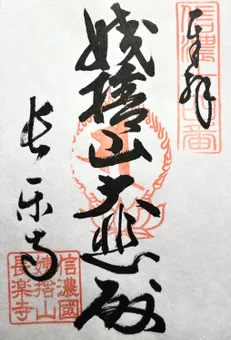 奉拝
信濃 番
姨捨山大悲殿
長楽寺
信濃國
姨捨山
長楽寺